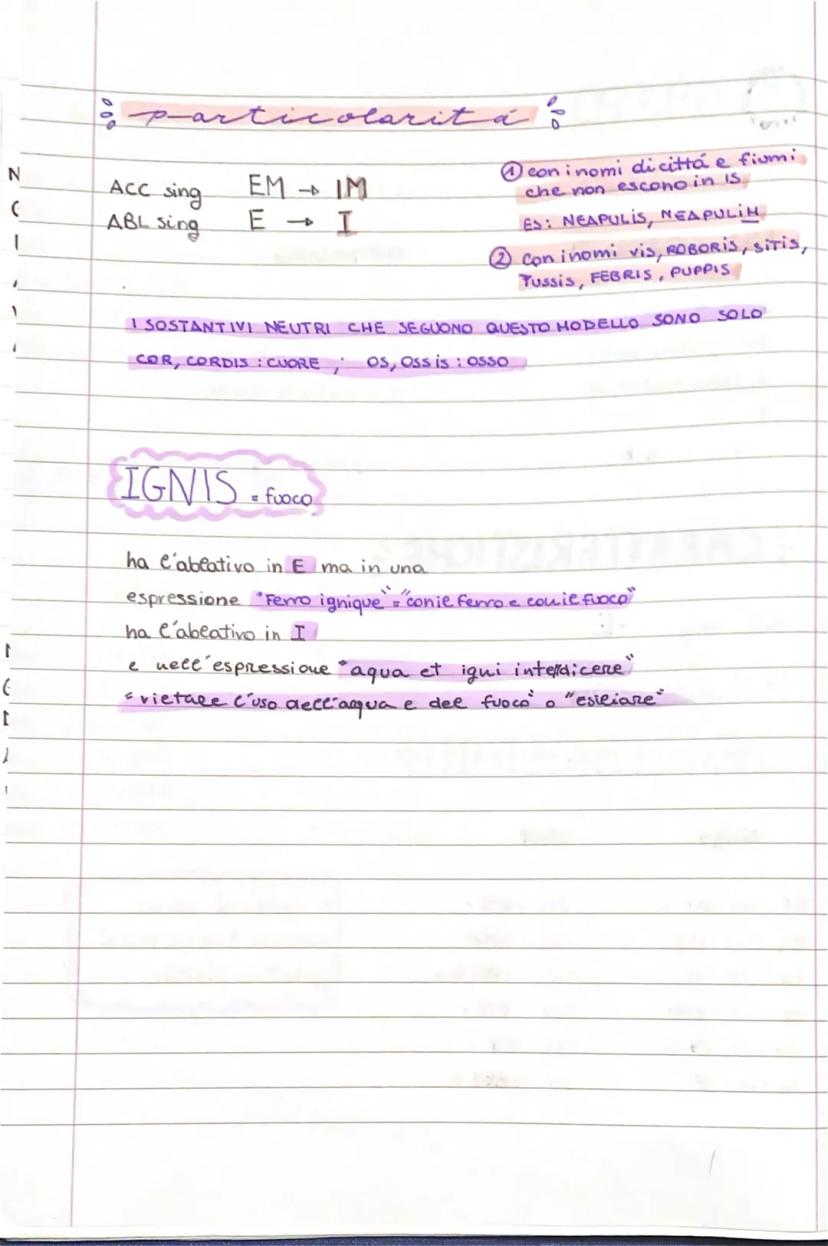 particolaritá
ACC sing EM → IM
ABL sing E → I
① con i nomi di cittá e fiumi
che non escono in IS
ES: NEAPULIS, NEAPULIM
② con i nomi vis, ROBORIS, SITIS,
TUSSIS, FEBRIS, PUPPIS
I SOSTANTIVI NEUTRI CHE SEGUONO QUESTO MODELLO SONO SOLO
COR, CORDIS : CUORE ; OS, OSSIS : OSSO
IGNIS = fuoco
ha l'ablativo in E ma in una
espressione "Ferro ignique" = "con il ferro e con il fuoco"
ha l'ablativo in I
e nell'espressione "aqua et igni interdicere"
"vietare l'uso dell'acqua e del fuoco" o "esiliare"